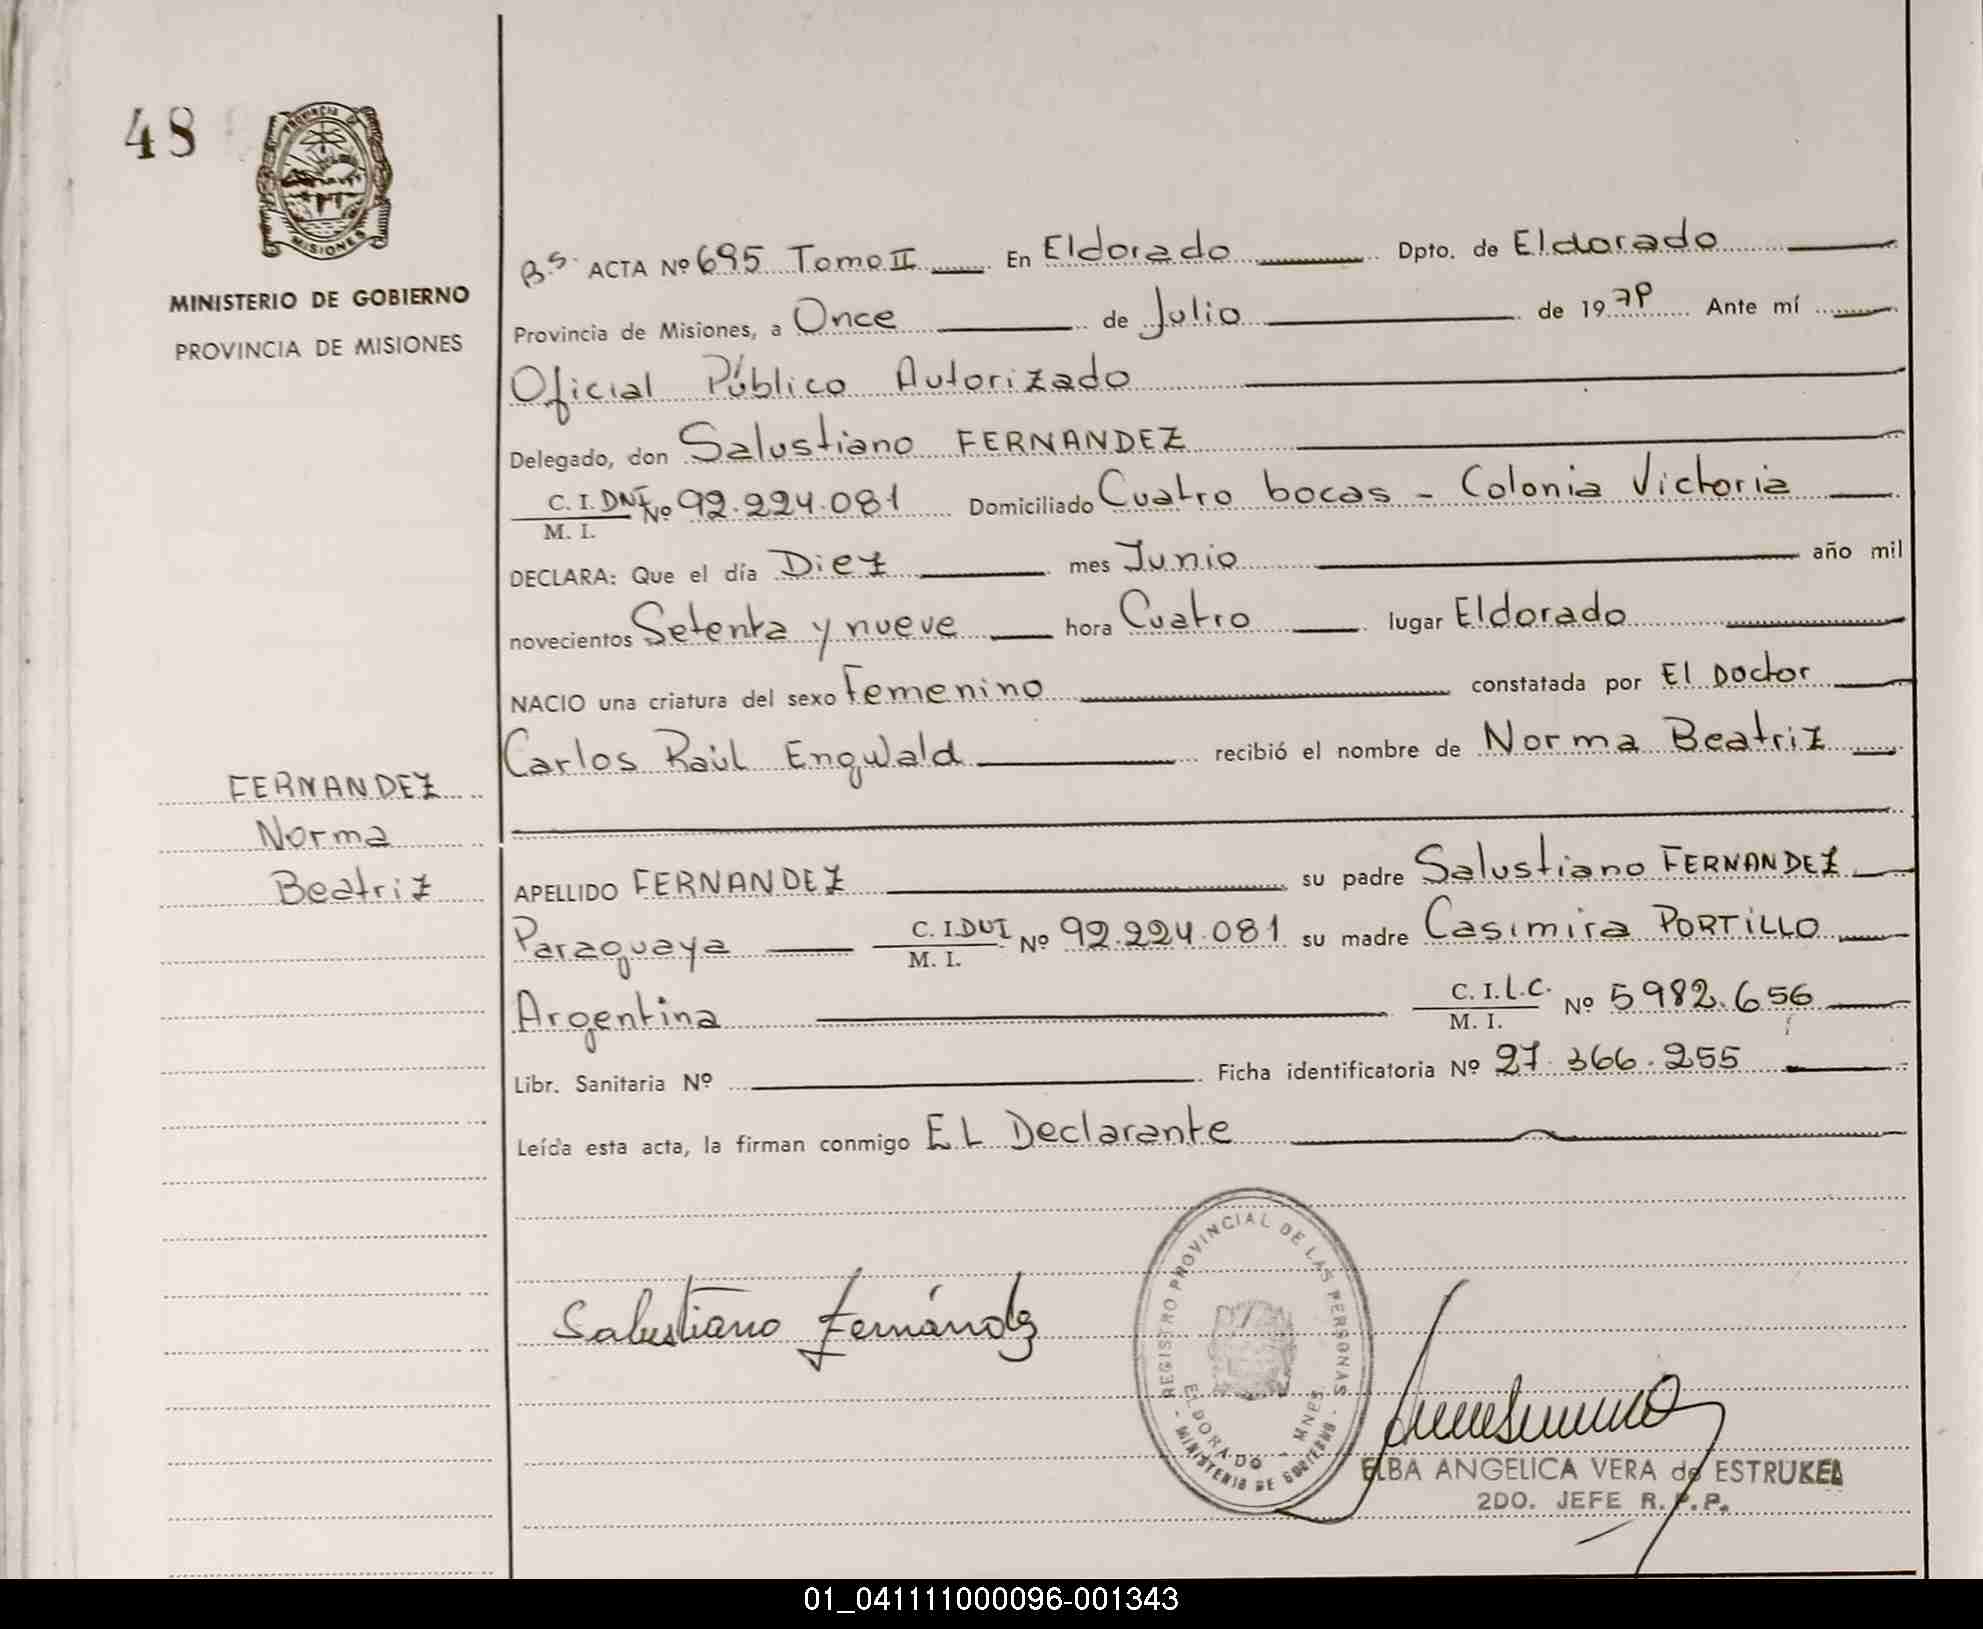 48
PROVINCIA DE
MISIONES
MINISTERIO DE GOBIERNO
PROVINCIA DE MISIONES
Bs. ACTA Nº 695 Tomo II En Eldorado Dpto. de Eldorado
Provincia de Misiones, a Once de Julio de 1979 Ante mí
Oficial Público Autorizado
Delegado, don Salustiano FERNANDEZ
C. I. DNI Nº 92.224.081 Domiciliado Cuatro bocas - Colonia Victoria
M. I.
DECLARA: Que el día Diez mes Junio año mil
novecientos Setenta y nueve hora Cuatro lugar Eldorado
NACIO una criatura del sexo Femenino constatada por El Doctor
Carlos Raúl Engwald recibió el nombre de Norma Beatriz
FERNANDEZ
Norma
Beatriz
APELLIDO FERNANDEZ su padre Salustiano FERNANDEZ
Paraguaya C. I. Nº 92.224.081 su madre Casimira PORTILLO
M. I.
Argentina C. I. L.C. Nº 5982.656
M. I.
Libr. Sanitaria Nº Ficha identificatoria Nº 27.366.255
Leída esta acta, la firman conmigo EL Declarante
Salustiano Fernández
REGISTRO PROVINCIAL DE LAS PERSONAS
ELDORADO - MNES.
- MINISTERIO DE GOBIERNO -
ELBA ANGELICA VERA de ESTRUKEL
2DO. JEFE R.P.P.
01_041111000096-001343